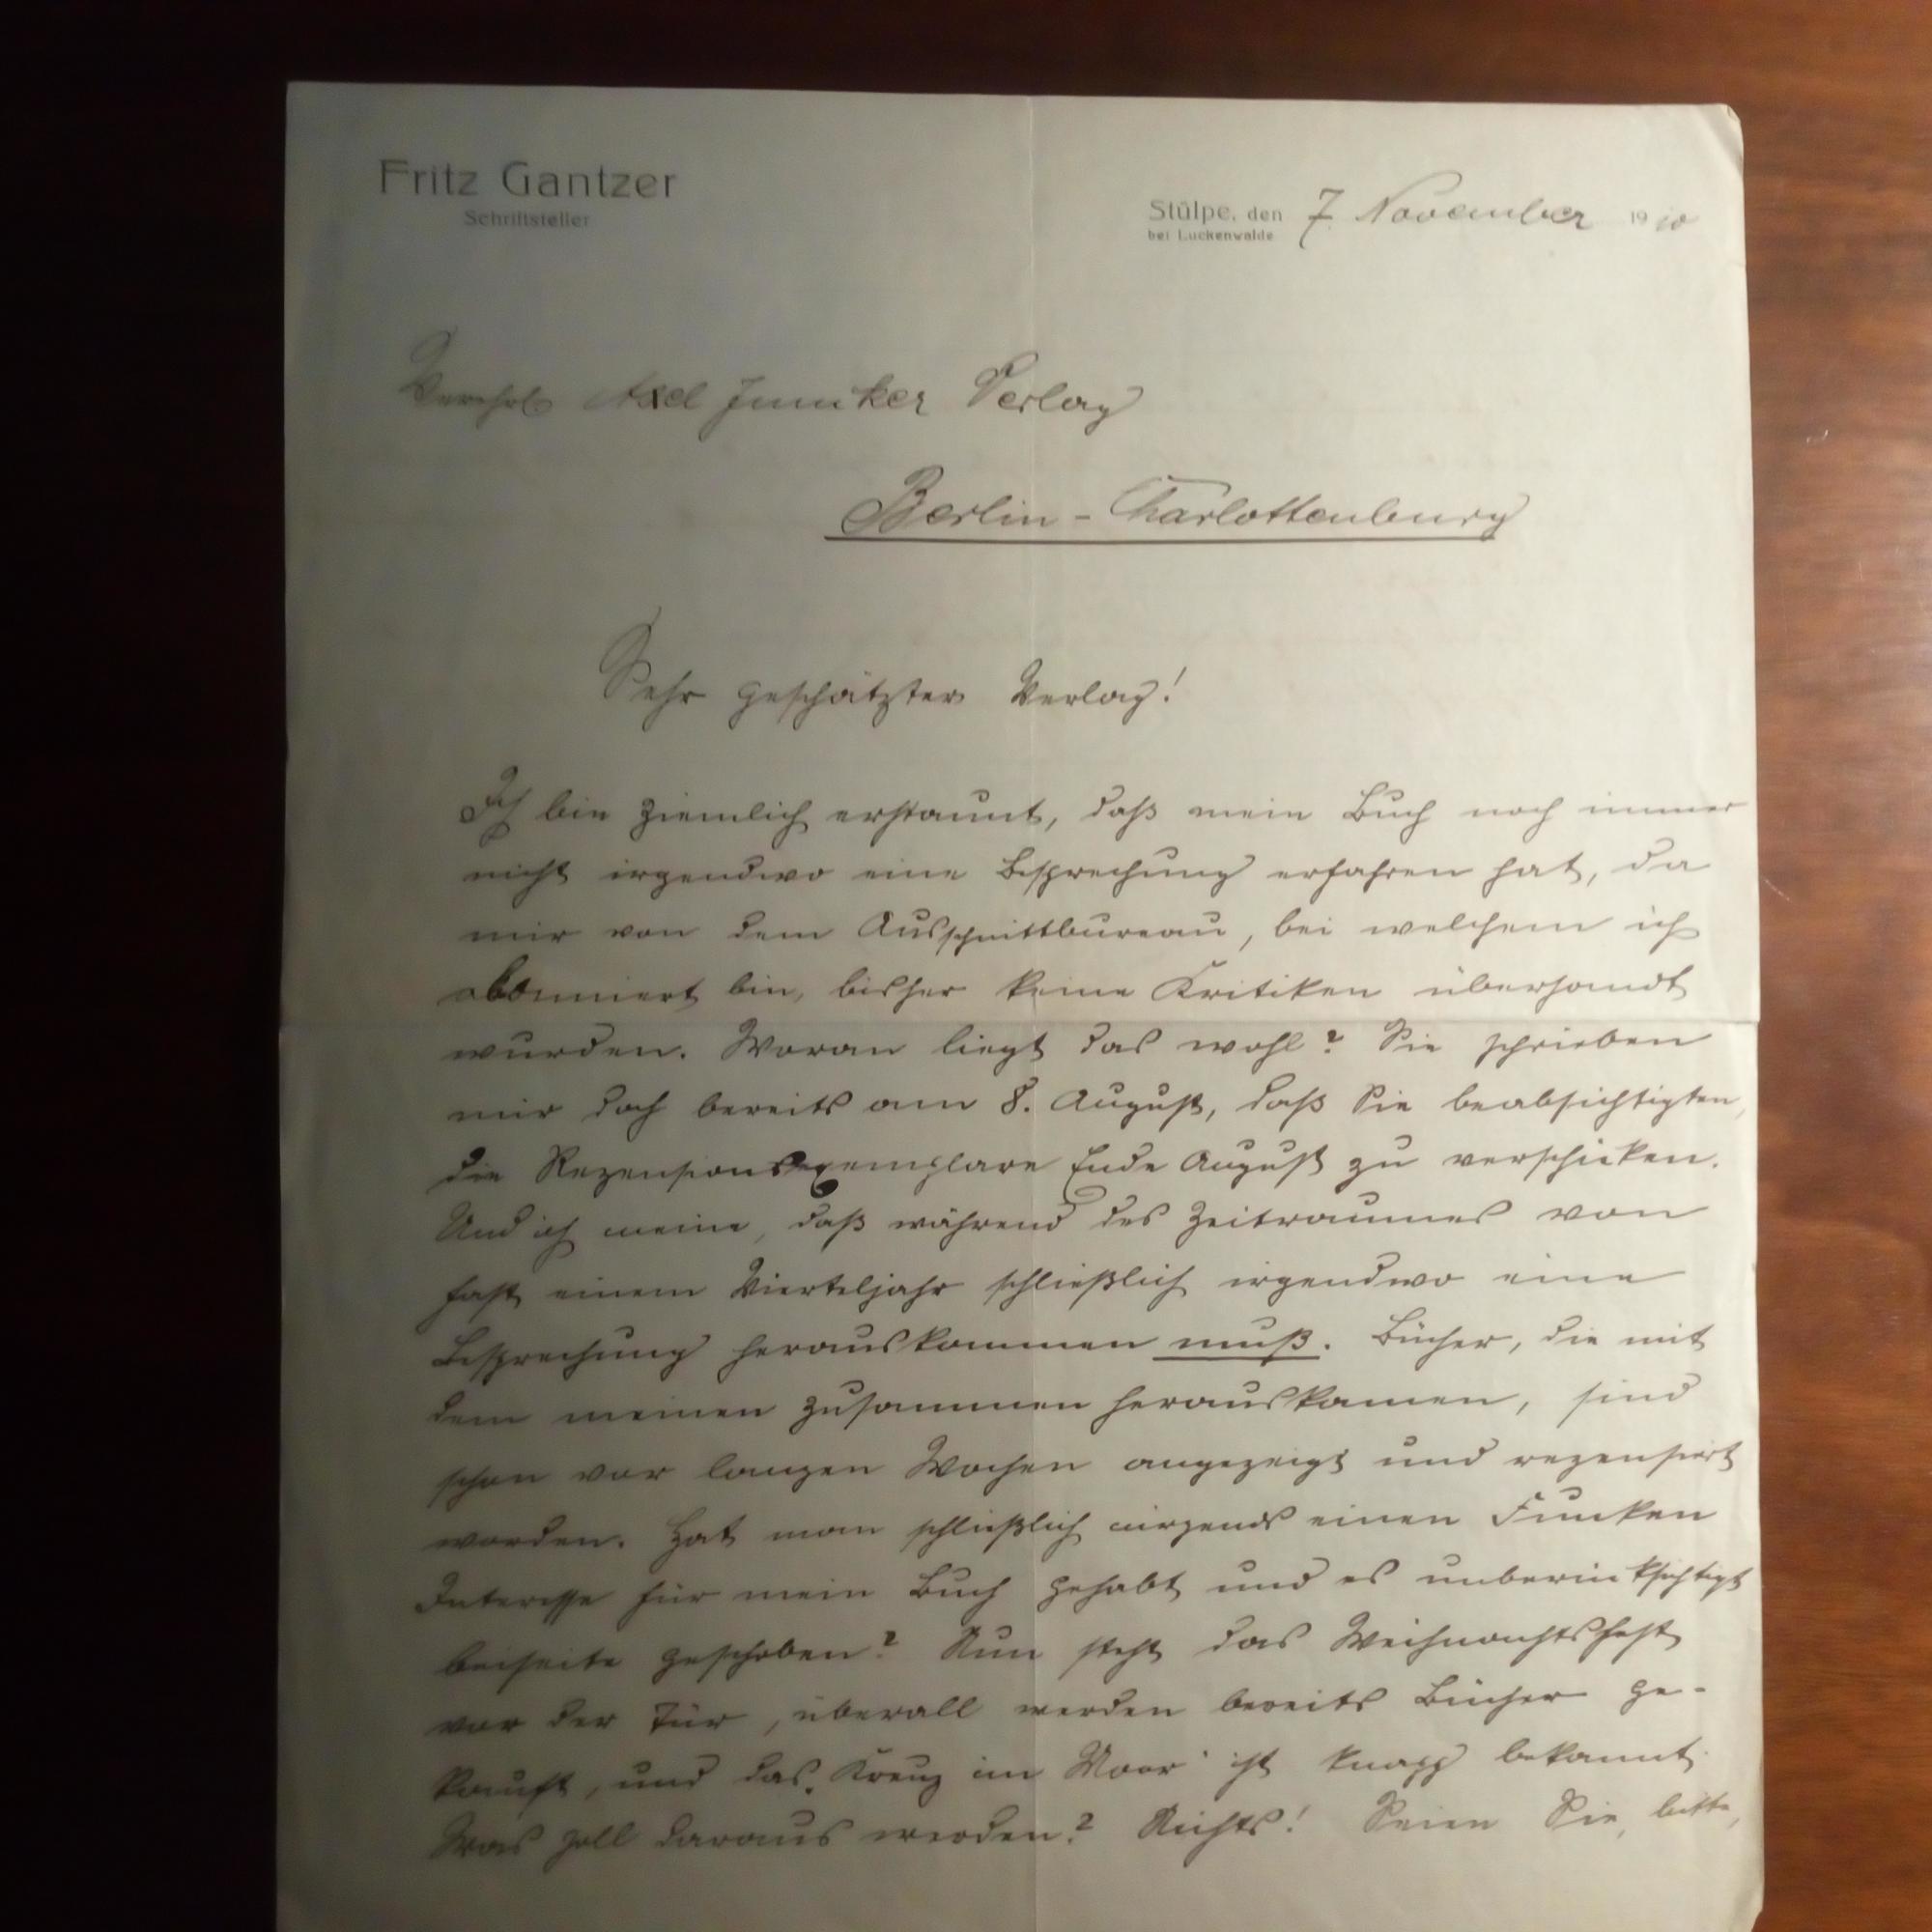 Fritz Gantzer
Schriftsteller
Stülpe, den 7. November 1910
bei Luckenwalde
Verehrl. Axel Juncker Verlag
Berlin-Charlottenburg
Sehr geschätzter Verlag!
Ich bin ziemlich erstaunt, daß mein Buch noch immer
nicht irgendwo eine Besprechung erfahren hat, da
mir von dem Ausschnittbureau, bei welchem ich
abonniert bin, bisher keine Kritiken übersandt
wurden. Woran liegt das wohl? Sie schrieben
mir doch bereits am 8. August, daß Sie beabsichtigten,
die Rezensionsexemplare Ende August zu verschicken.
Und ich meine, daß während des Zeitraumes von
fast einem Vierteljahr schließlich irgendwo eine
Besprechung herauskommen muß. Bücher, die mit
dem meinen zusammen herauskamen, sind
schon vor langen Wochen angezeigt und rezensiert
worden. Hat man schließlich nirgends einen Funken
Interesse für mein Buch gehabt und es unberücksichtigt
beiseite geschoben? Nun steht das Weihnachtsfest
vor der Tür, überall werden bereits Bücher ge-
kauft, und das „Kreuz im Moor“ ist knapp bekannt.
Was soll daraus werden? Nichts! Seien Sie, bitte,